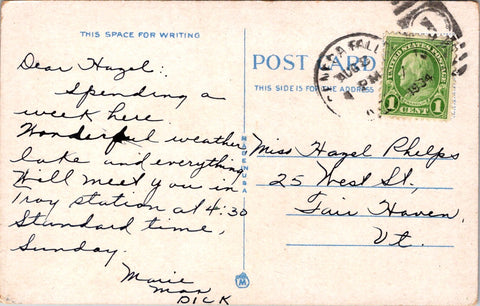 THIS SPACE FOR WRITING
Dear Hazel:
Spending a
week here.
Wonderful weather
lake and everything
Will meet you in
Troy station at 4:30
Standard time,
Sunday.
Marie
Man
DICK
MADE IN U.S.A.
POST CARD
THIS SIDE IS FOR THE ADDRESS
SENECA FALLS
AUG
PM
1934
UNITED STATES POSTAGE
1 CENT 1
Miss Hazel Phelps
25 West St,
Fair Haven,
Vt.